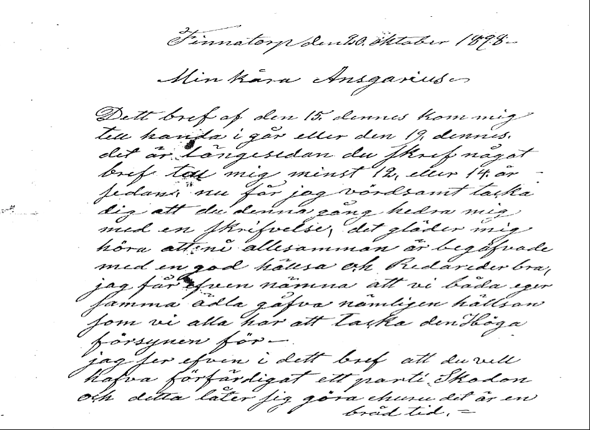 Finnatorp den 20. oktober 1898 –
Min kära Ansgarius
Dett bref af den 15 dennes kom mig
till handa i går eller den 19 dennes.
det är längesedan du skref något
bref till mig minst 12, eller 14 år
sedan, nu får jag vördsamt tacka
dig att du denna gång hedra mig
med en skrifvelse, det gläder mig
höra att ni allesamman är begåfvade
med en god hälsa och Redareder bra,
jag får efven nämna att vi båda eger
samma ädla gåfva nämligen hällsan
som vi alla har att tacka den höga
försynen för –
jag ser efven i dett bref att du vill
hafva förfärdigat ett parti Skodon
och detta låter sig göra churu det är en
bråd tid. =